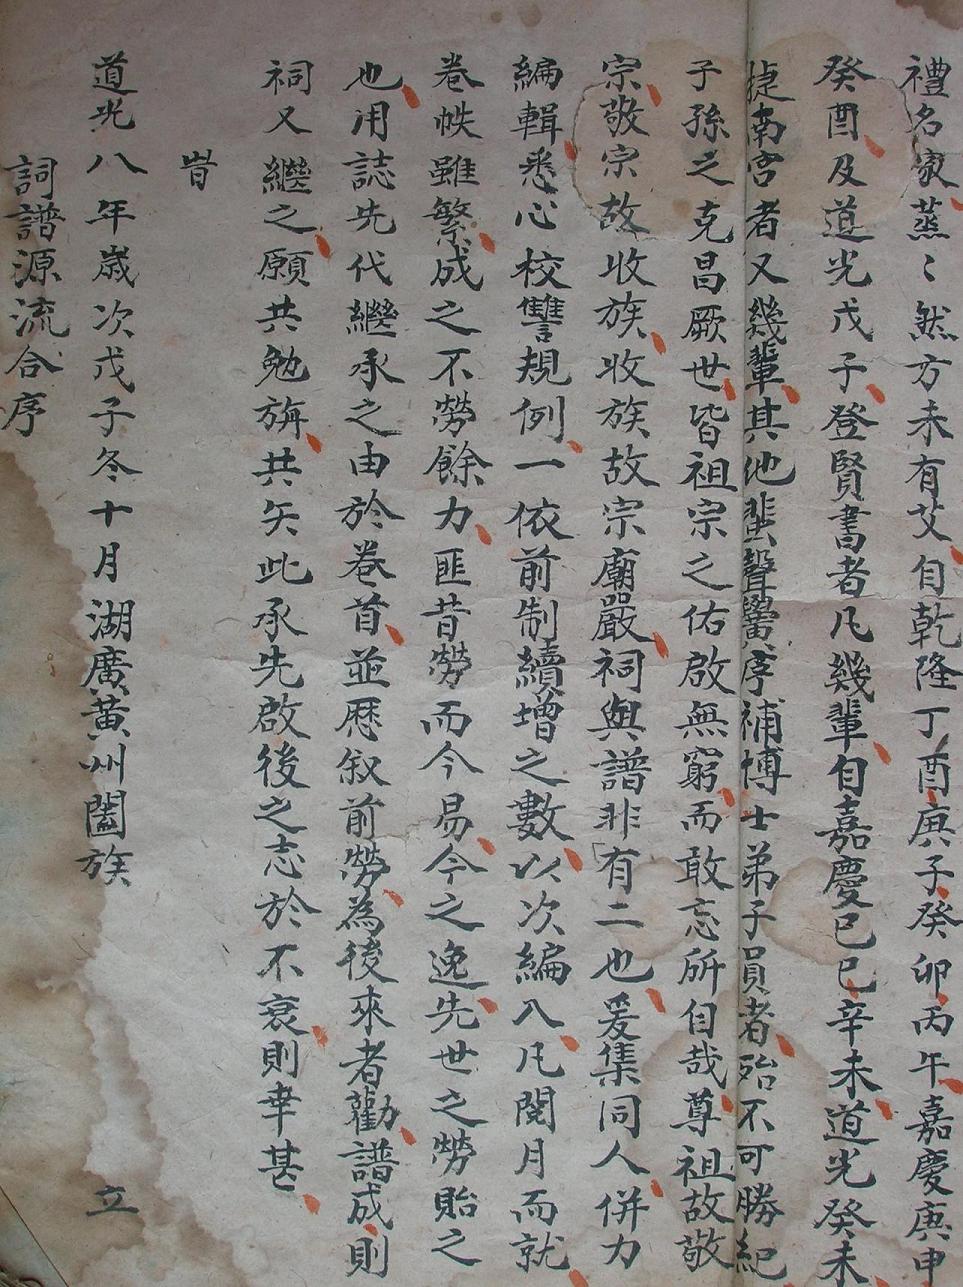 禮名家蒸〻然方未有艾自乾隆丁酉庚子癸卯丙午嘉慶庚申
癸酉及道光戊子登賢書者凡幾輩自嘉慶己巳辛未道光癸未
捷南宮者又幾輩其他蜚聲黌序補博士弟子員者殆不可勝紀
子孫之克昌厥世皆祖宗之佑啟無窮而敢忘所自哉尊祖故敬
宗敬宗故收族收族故宗廟嚴祠與譜非有二也爰集同人併力
編輯悉心校讐規例一依前制續增之數以次編入凡閱月而就
卷帙雖繁成之不勞餘力匪昔勞而今易今之逸先世之勞貽之
也用誌先代繼承之由於卷首並歷叙前勞為後來者勸譜成則
祠又繼之願共勉旃共矢此承先啟後之志於不衰則幸甚
旹
道光八年歲次戊子冬十月湖廣黃州闔族 立
詞譜源流合序